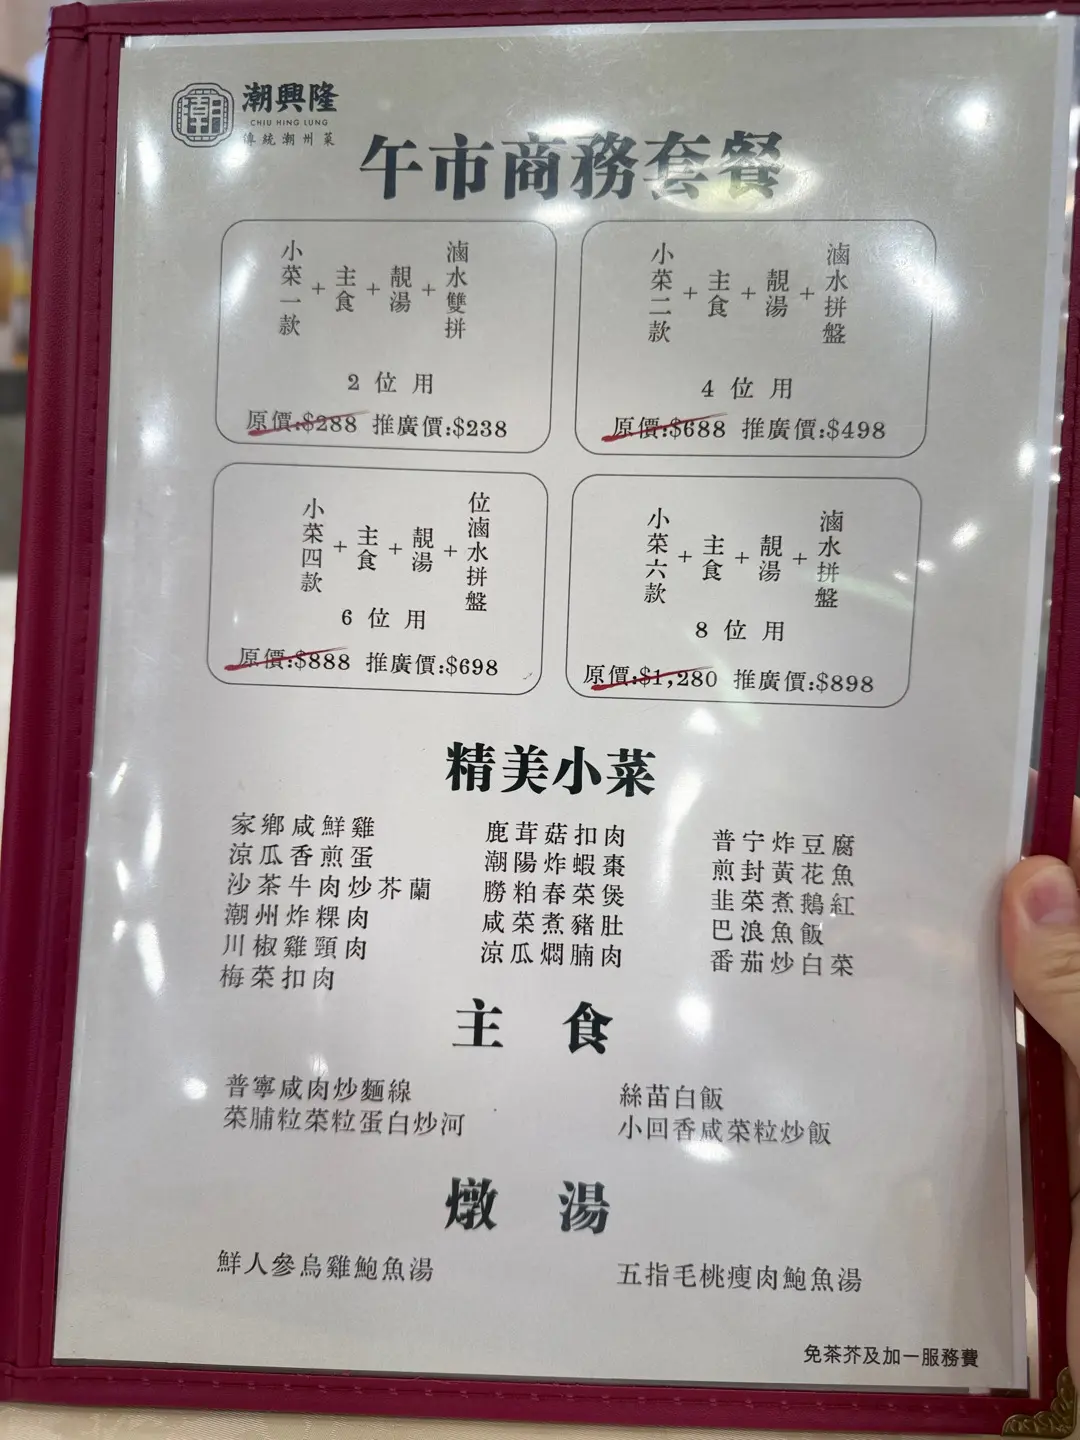 潮興隆
CHIU HING LUNG
傳統潮州菜
午市商務套餐
小菜一款+主食+靚湯+滷水雙拼
2位用
原價:$288 推廣價:$238
小菜二款+主食+靚湯+滷水拼盤
4位用
原價:$688 推廣價:$498
小菜四款+主食+靚湯+位滷水拼盤
6位用
原價:$888 推廣價:$698
小菜六款+主食+靚湯+滷水拼盤
8位用
原價:$1,280 推廣價:$898
精美小菜
家鄉咸鮮雞
涼瓜香煎蛋
沙茶牛肉炒芥蘭
潮州炸粿肉
川椒雞頸肉
梅菜扣肉
鹿茸菇扣肉
潮陽炸蝦棗
勝粕春菜煲
咸菜煮豬肚
涼瓜燜腩肉
普宁炸豆腐
煎封黃花魚
韭菜煮鵝紅
巴浪魚飯
番茄炒白菜
主食
普寧咸肉炒麵線
菜脯粒菜粒蛋白炒河
絲苗白飯
小回香咸菜粒炒飯
燉湯
鮮人參烏雞鮑魚湯
五指毛桃瘦肉鮑魚湯
免茶芥及加一服務費